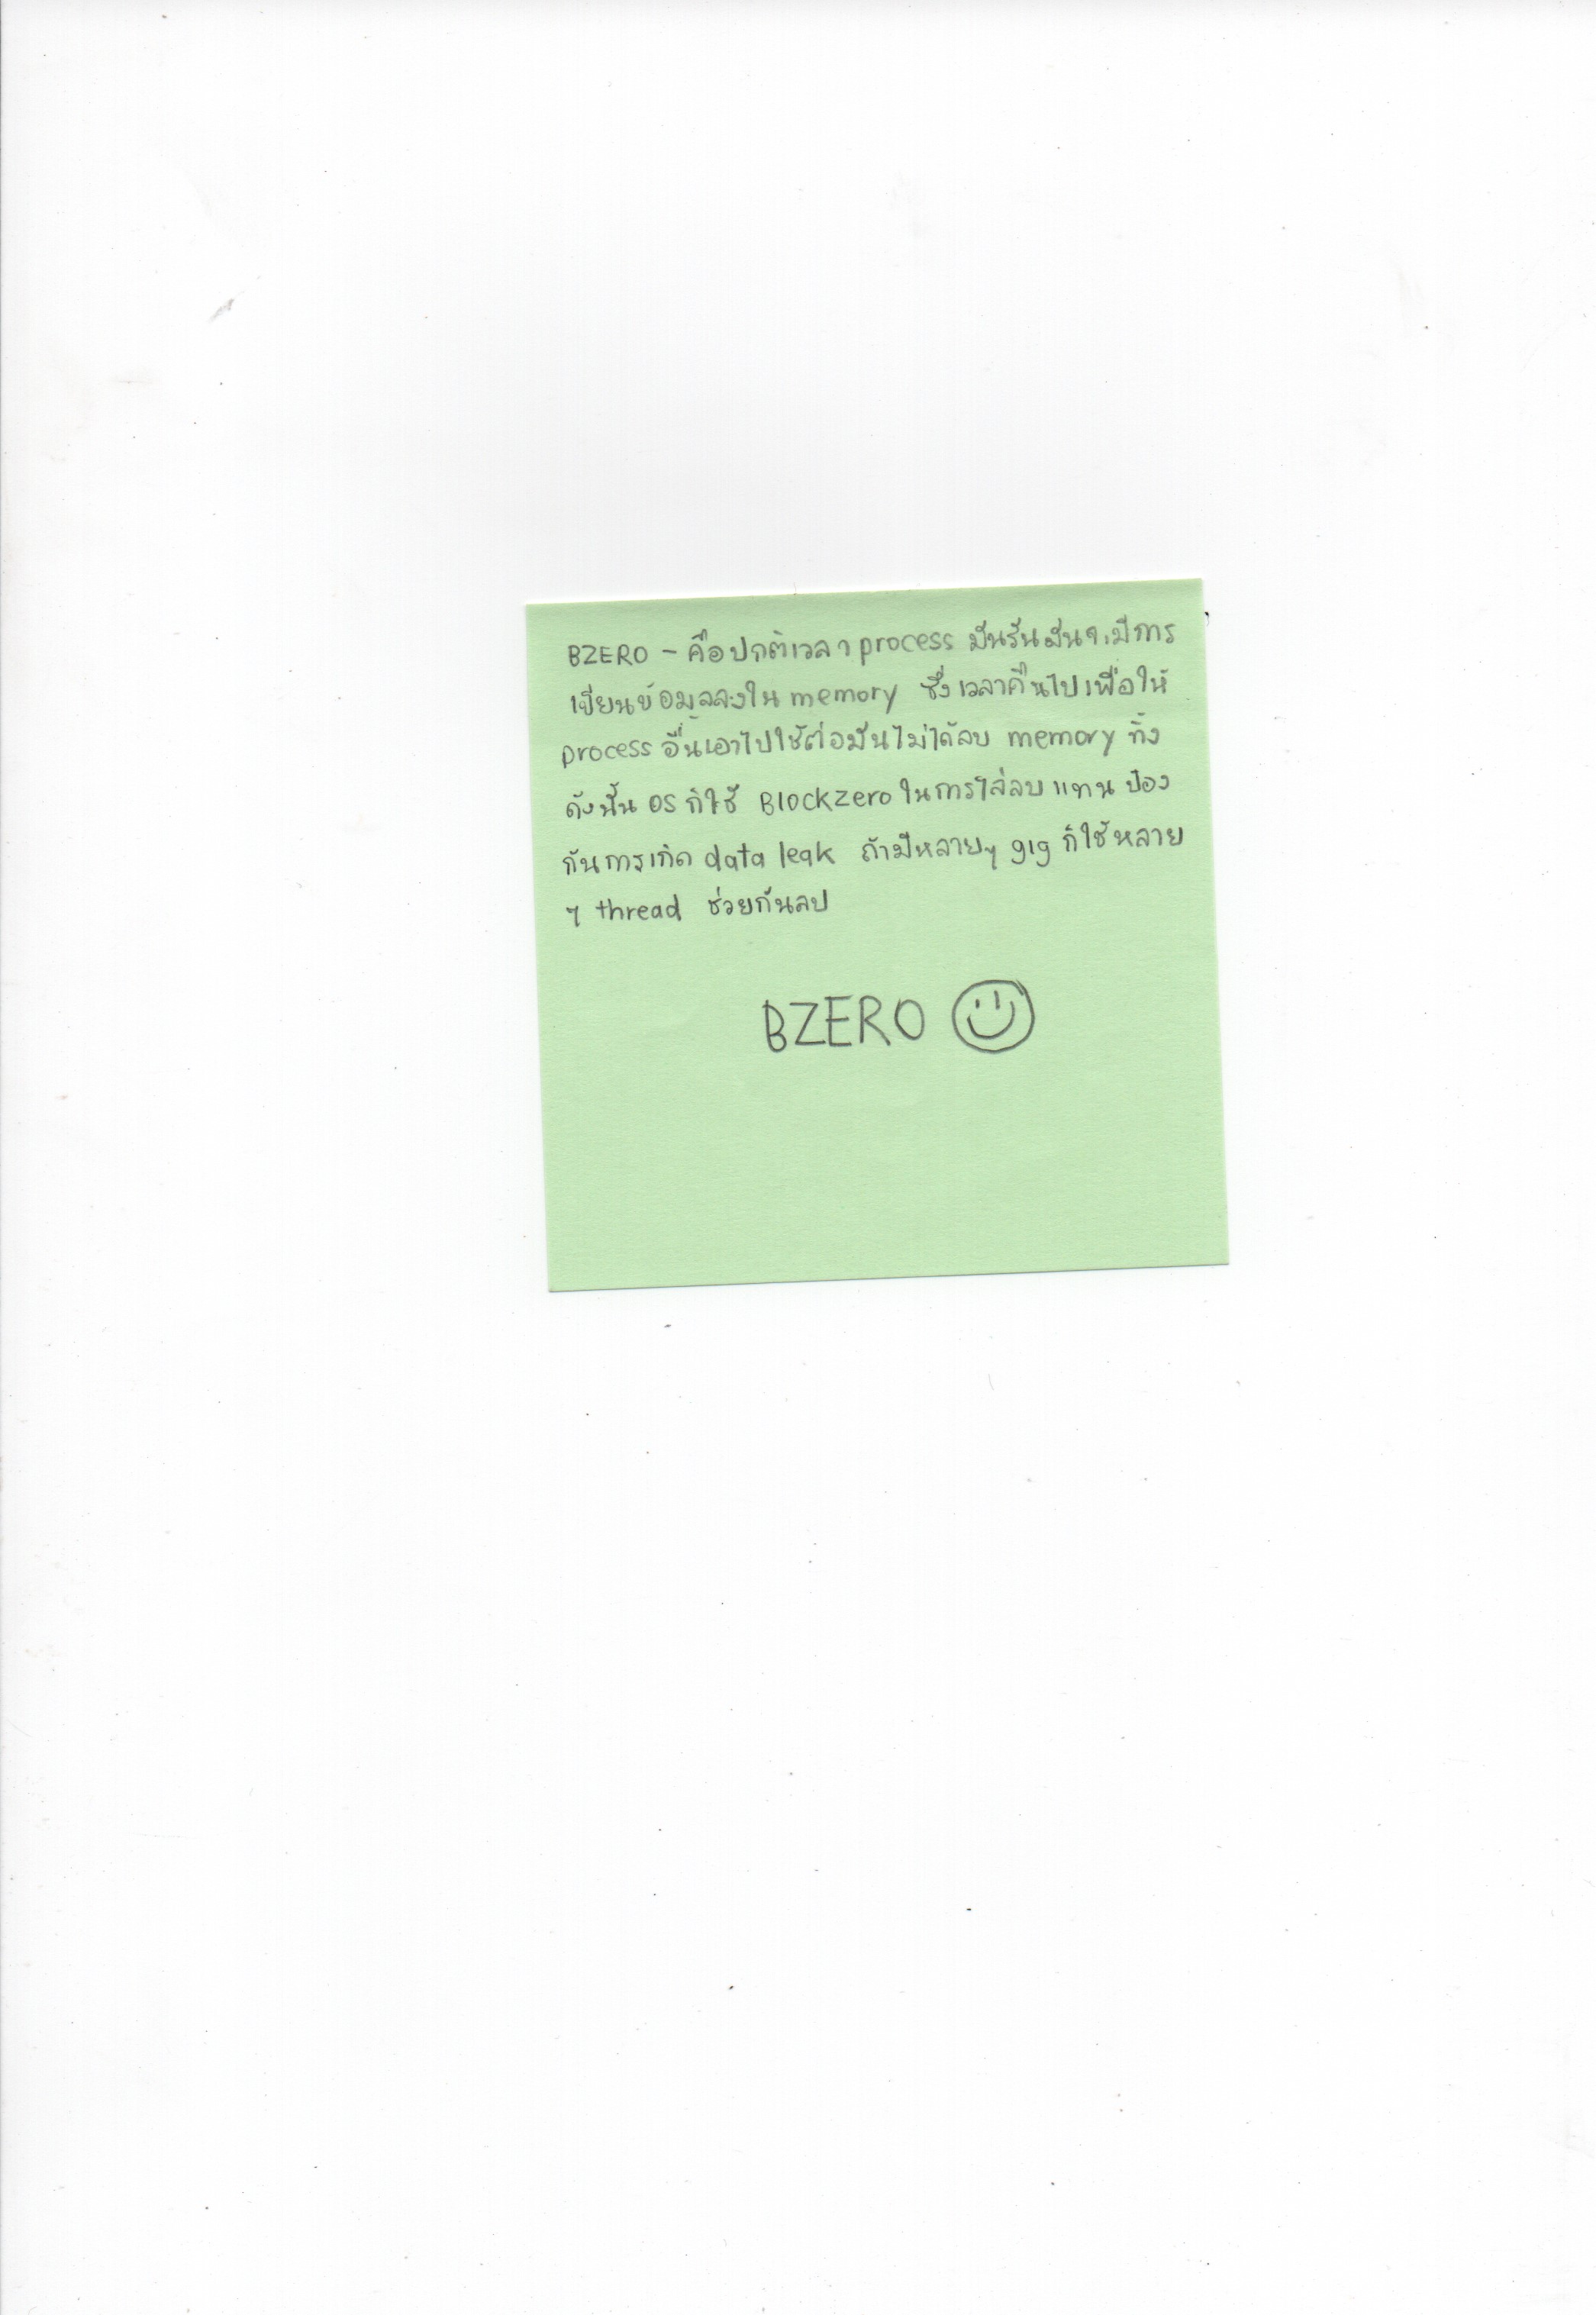 BZERO - คือปกติเวลา process มันรันมันจะมีการ
เขียนข้อมูลลงใน memory ซึ่งเวลาคืนไปเพื่อให้
process อื่นเอาไปใช้ต่อมันไม่ได้ลบ memory ทิ้ง
ดังนั้น OS ก็ใช้ Blockzero ในการไล่ลบแทน ป้อง
กันการเกิด data leak ถ้ามีหลายๆ gig ก็ใช้หลาย
ๆ thread ช่วยกันลบ
BZERO